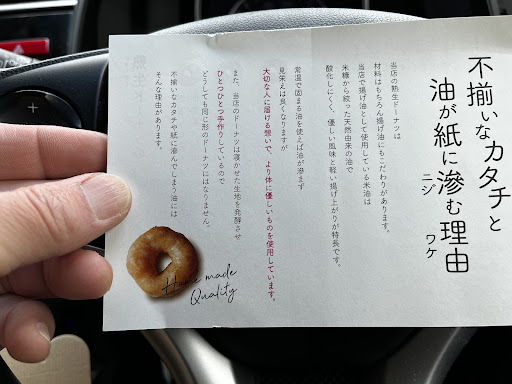 不揃いなカタチと
油が紙に滲む理由
ニジ
ワケ
当店の熟生ドーナツは
材料はもちろん揚げ油にもこだわりがあります。
当店で揚げ油として使用している米油は
米糠から絞った天然由来の油で
酸化しにくく、優しい風味と軽い揚げ上がりが特長です。
常温で固まる油を使えば油が滲まず
見栄えは良くなりますが
大切な人に届ける想いで、より体に優しいものを使用しています。
また、当店のドーナツは寝かせた生地を発酵させ
ひとつひとつ手作りしているので
どうしても同じ形のドーナツにはなりません。
不揃いなカタチや紙に滲んでしまう油には
そんな理由があります。
Home made
Quality